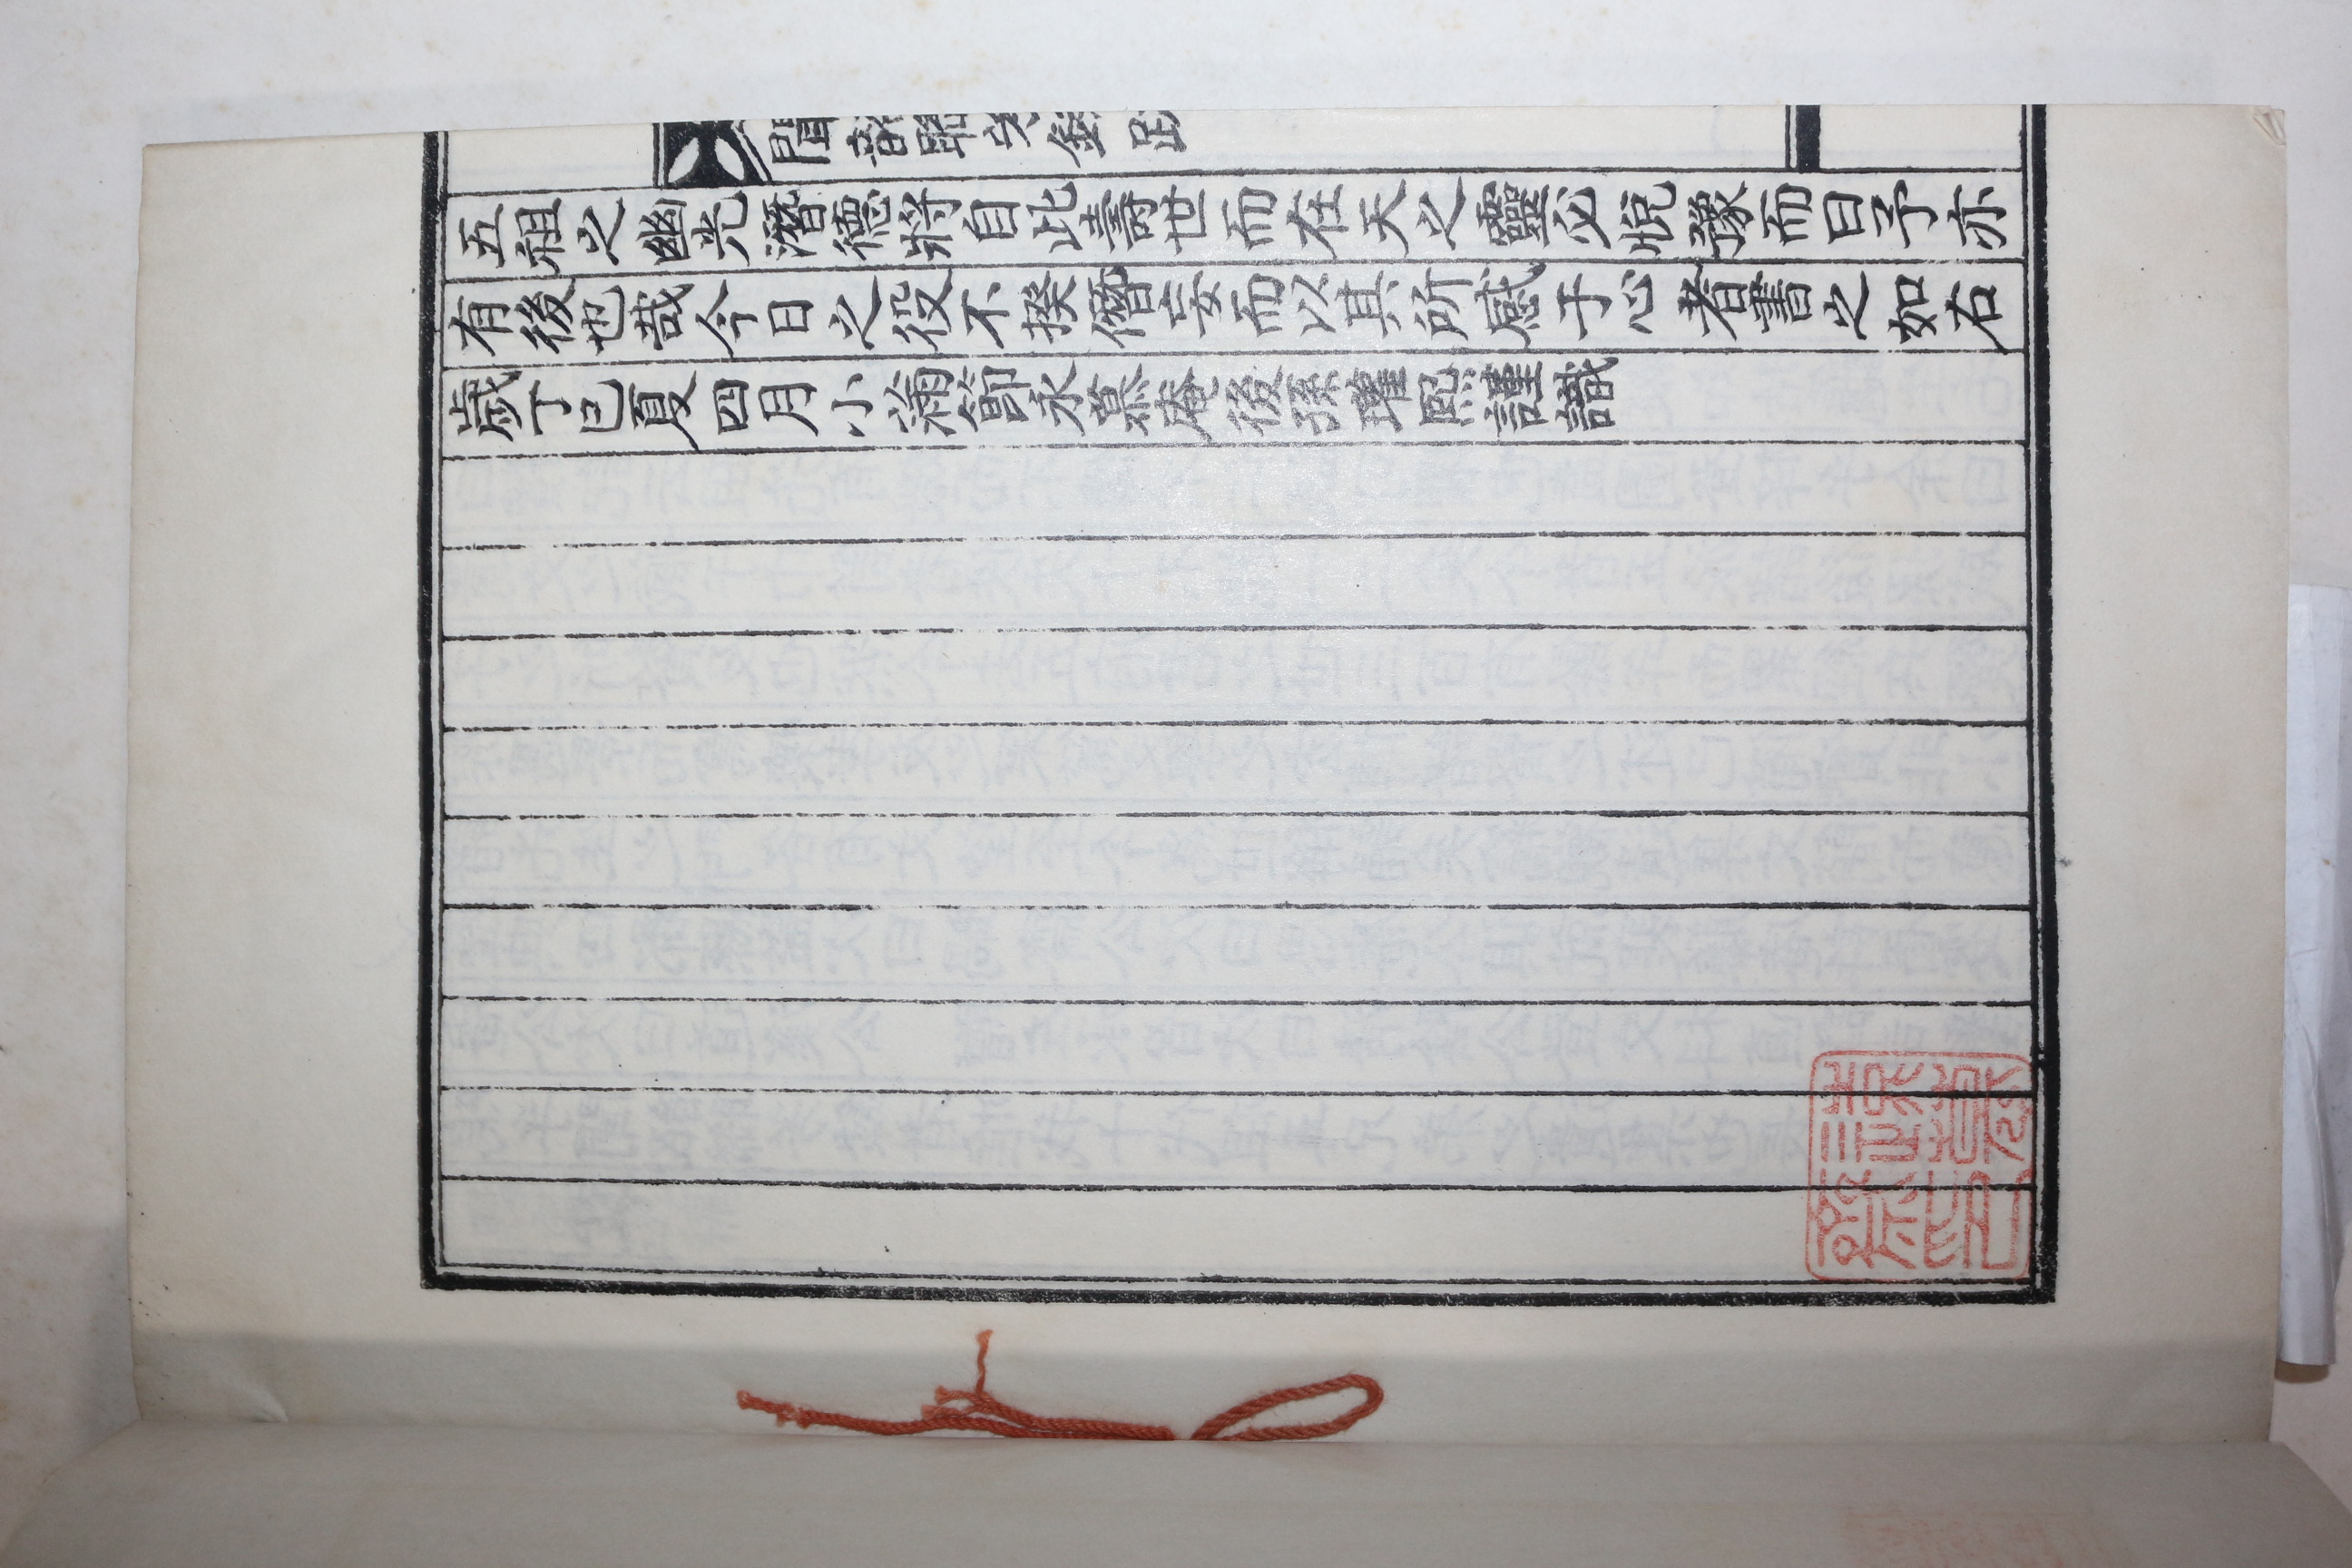 聞韶聯芳錄跋
五祖之幽光潛德將自此壽世而在天之靈必悅豫而曰予亦
有後也哉今日之役不揆僭妄而以其所感于心者書之如右
歲丁巳夏四月小滿節永慕庵後孫瓘熙謹識
遠慕
齋印